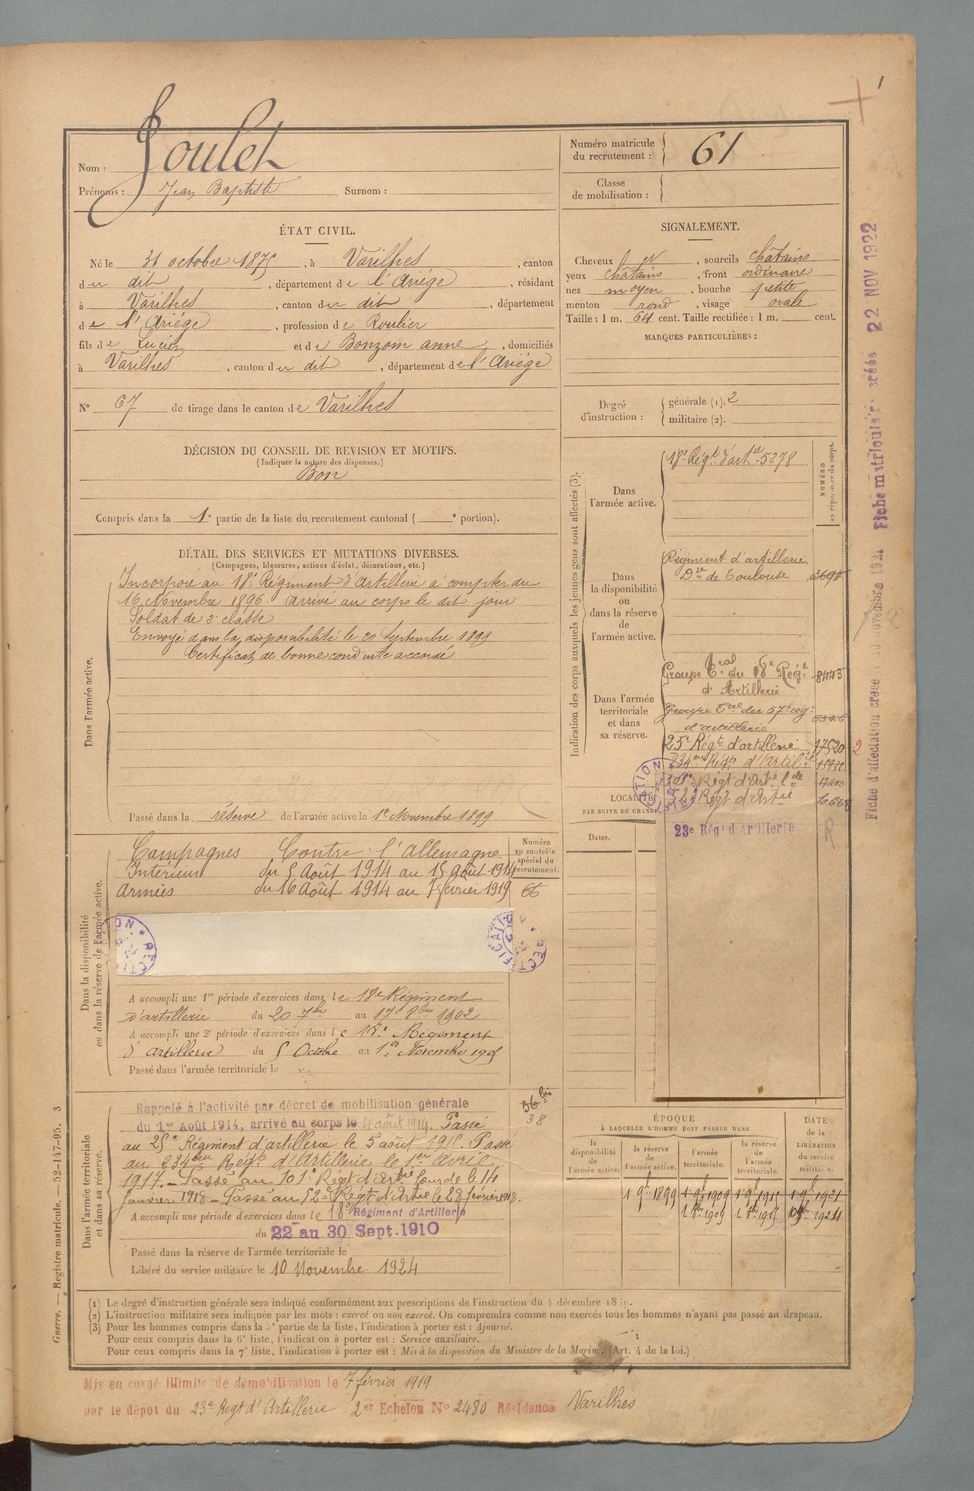 Nom : Soulet
Prénoms : Jean Baptiste Surnom :
Numéro matricule du recrutement : 61
Classe de mobilisation :
ÉTAT CIVIL.
Né le 31 octobre 1875, à Varilhes, canton
du dit, département de l'Ariége, résidant
à Varilhes, canton du dit, département
de l'Ariége, profession de Roulier
fils de Lucien et de Bonzom anne, domiciliés
à Varilhes, canton du dit, département de l'Ariége
N° 67 de tirage dans le canton de Varilhes
SIGNALEMENT.
Cheveux, sourcils châtains
yeux châtains, front ordinaire
nez moyen, bouche petite
menton rond, visage ovale
Taille : 1 m. 64 cent. Taille rectifiée : 1 m. cent.
MARQUES PARTICULIÈRES :
Degré d'instruction : générale (1). 2
militaire (2).
DÉCISION DU CONSEIL DE REVISION ET MOTIFS.
(Indiquer la nature des dispenses.)
Bon
Compris dans la 1e partie de la liste du recrutement cantonal ( e portion).
DÉTAIL DES SERVICES ET MUTATIONS DIVERSES.
(Campagnes, blessures, actions d'éclat, décorations, etc.)
Dans l'armée active.
Incorporé au 18e Régiment d'artillerie à compter du
16 Novembre 1896. Arrivé au corps le dit jour
Soldat de 2e classe
Envoyé dans la disponibilité le 20 Septembre 1899
Certificat de bonne conduite accordé
Passé dans la réserve de l'armée active le 1er Novembre 1899
Dans la disponibilité ou dans la réserve de l'armée active.
Numéro au contrôle spécial du recrutement.
Campagnes Contre l'allemagne
Intérieur du 5 Août 1914 au 15 Août 1914
Armées du 16 Août 1914 au 7 février 1919
66
RECTIFICATION
A accompli une 1re période d'exercices dans le 18e Régiment
d'artillerie du 20 7bre au 17 8bre 1902
A accompli une 2e période d'exercices dans le 18e Régiment
d'artillerie du 5 Octobre au 1er Novembre 1905
Passé dans l'armée territoriale le
Dans l'armée territoriale et dans sa réserve.
56 bis
38
Rappelé à l'activité par décret de mobilisation générale
du 1er Août 1914, arrivé au corps le 4 août 1914. Passé
au 25e Régiment d'artillerie le 5 août 1915. Passé
au 234ème Régt d'Artillerie le 1er Avril
1917. Passé au 101e Régt d'Artie Lourde le 14
Janvier 1918. Passé au 52e Régt d'Artie le 28 février 1918.
A accompli une période d'exercices dans le 18e Régiment d'Artillerie
du 22 au 30 Sept. 1910
Passé dans la réserve de l'armée territoriale le
Libéré du service militaire le 10 Novembre 1924
Indication des corps auxquels les jeunes gens sont affectés (3).
NUMÉRO au répertoire du corps.
Dans l'armée active.
18e Régt d'artie 5378
Dans la disponibilité ou dans la réserve de l'armée active.
Régiment d'artillerie
Don de Toulouse
Dans l'armée territoriale et dans sa réserve.
Groupe Tal du 18e Régt
d'Artillerie 8443
Groupe Tal du 57e rég
d'artillerie
25e Régt d'artillerie 17520
234ème Régt d'Artil
Régt d'Artie
23e Rég d'Artillerie
LOCALITÉ
PAR SUITE DE CHANG
Dates.
ÉPOQUE
À LAQUELLE L'HOMME DOIT PASSER DANS
la disponibilité de l'armée active.
la réserve de l'armée active.
l'armée territoriale.
la réserve de l'armée territoriale.
DATE de la LIBÉRATION du service militaire.
1 9bre 1899 1 9bre 1909 1 9bre 1915 1 9bre 1921
(1) Le degré d'instruction générale sera indiqué conformément aux prescriptions de l'instruction du 4 décembre
(2) L'instruction militaire sera indiquée par les mots : exercé ou non exercé. On comprendra comme non exercés tous les hommes n'ayant pas passé au drapeau.
(3) Pour les hommes compris dans la 5e partie de la liste, l'indication à porter est : Ajourné.
Pour ceux compris dans la 6e liste, l'indication à porter est : Service auxiliaire.
Pour ceux compris dans la 7e liste, l'indication à porter est : Mis à la disposition du Ministre de la Marine. (Art. 4 de la loi.)
Mis en congé illimité de démobilisation le 7 février 1919
par le dépôt du 23e Regt d'Artillerie 2er Echelon N° 2480 Résidence Varilhes
Guerre. — Registre matricule. — 52-147-95. 3
Fiche matriculaire créée 22 NOV 1922
Fiche d'affectation créée